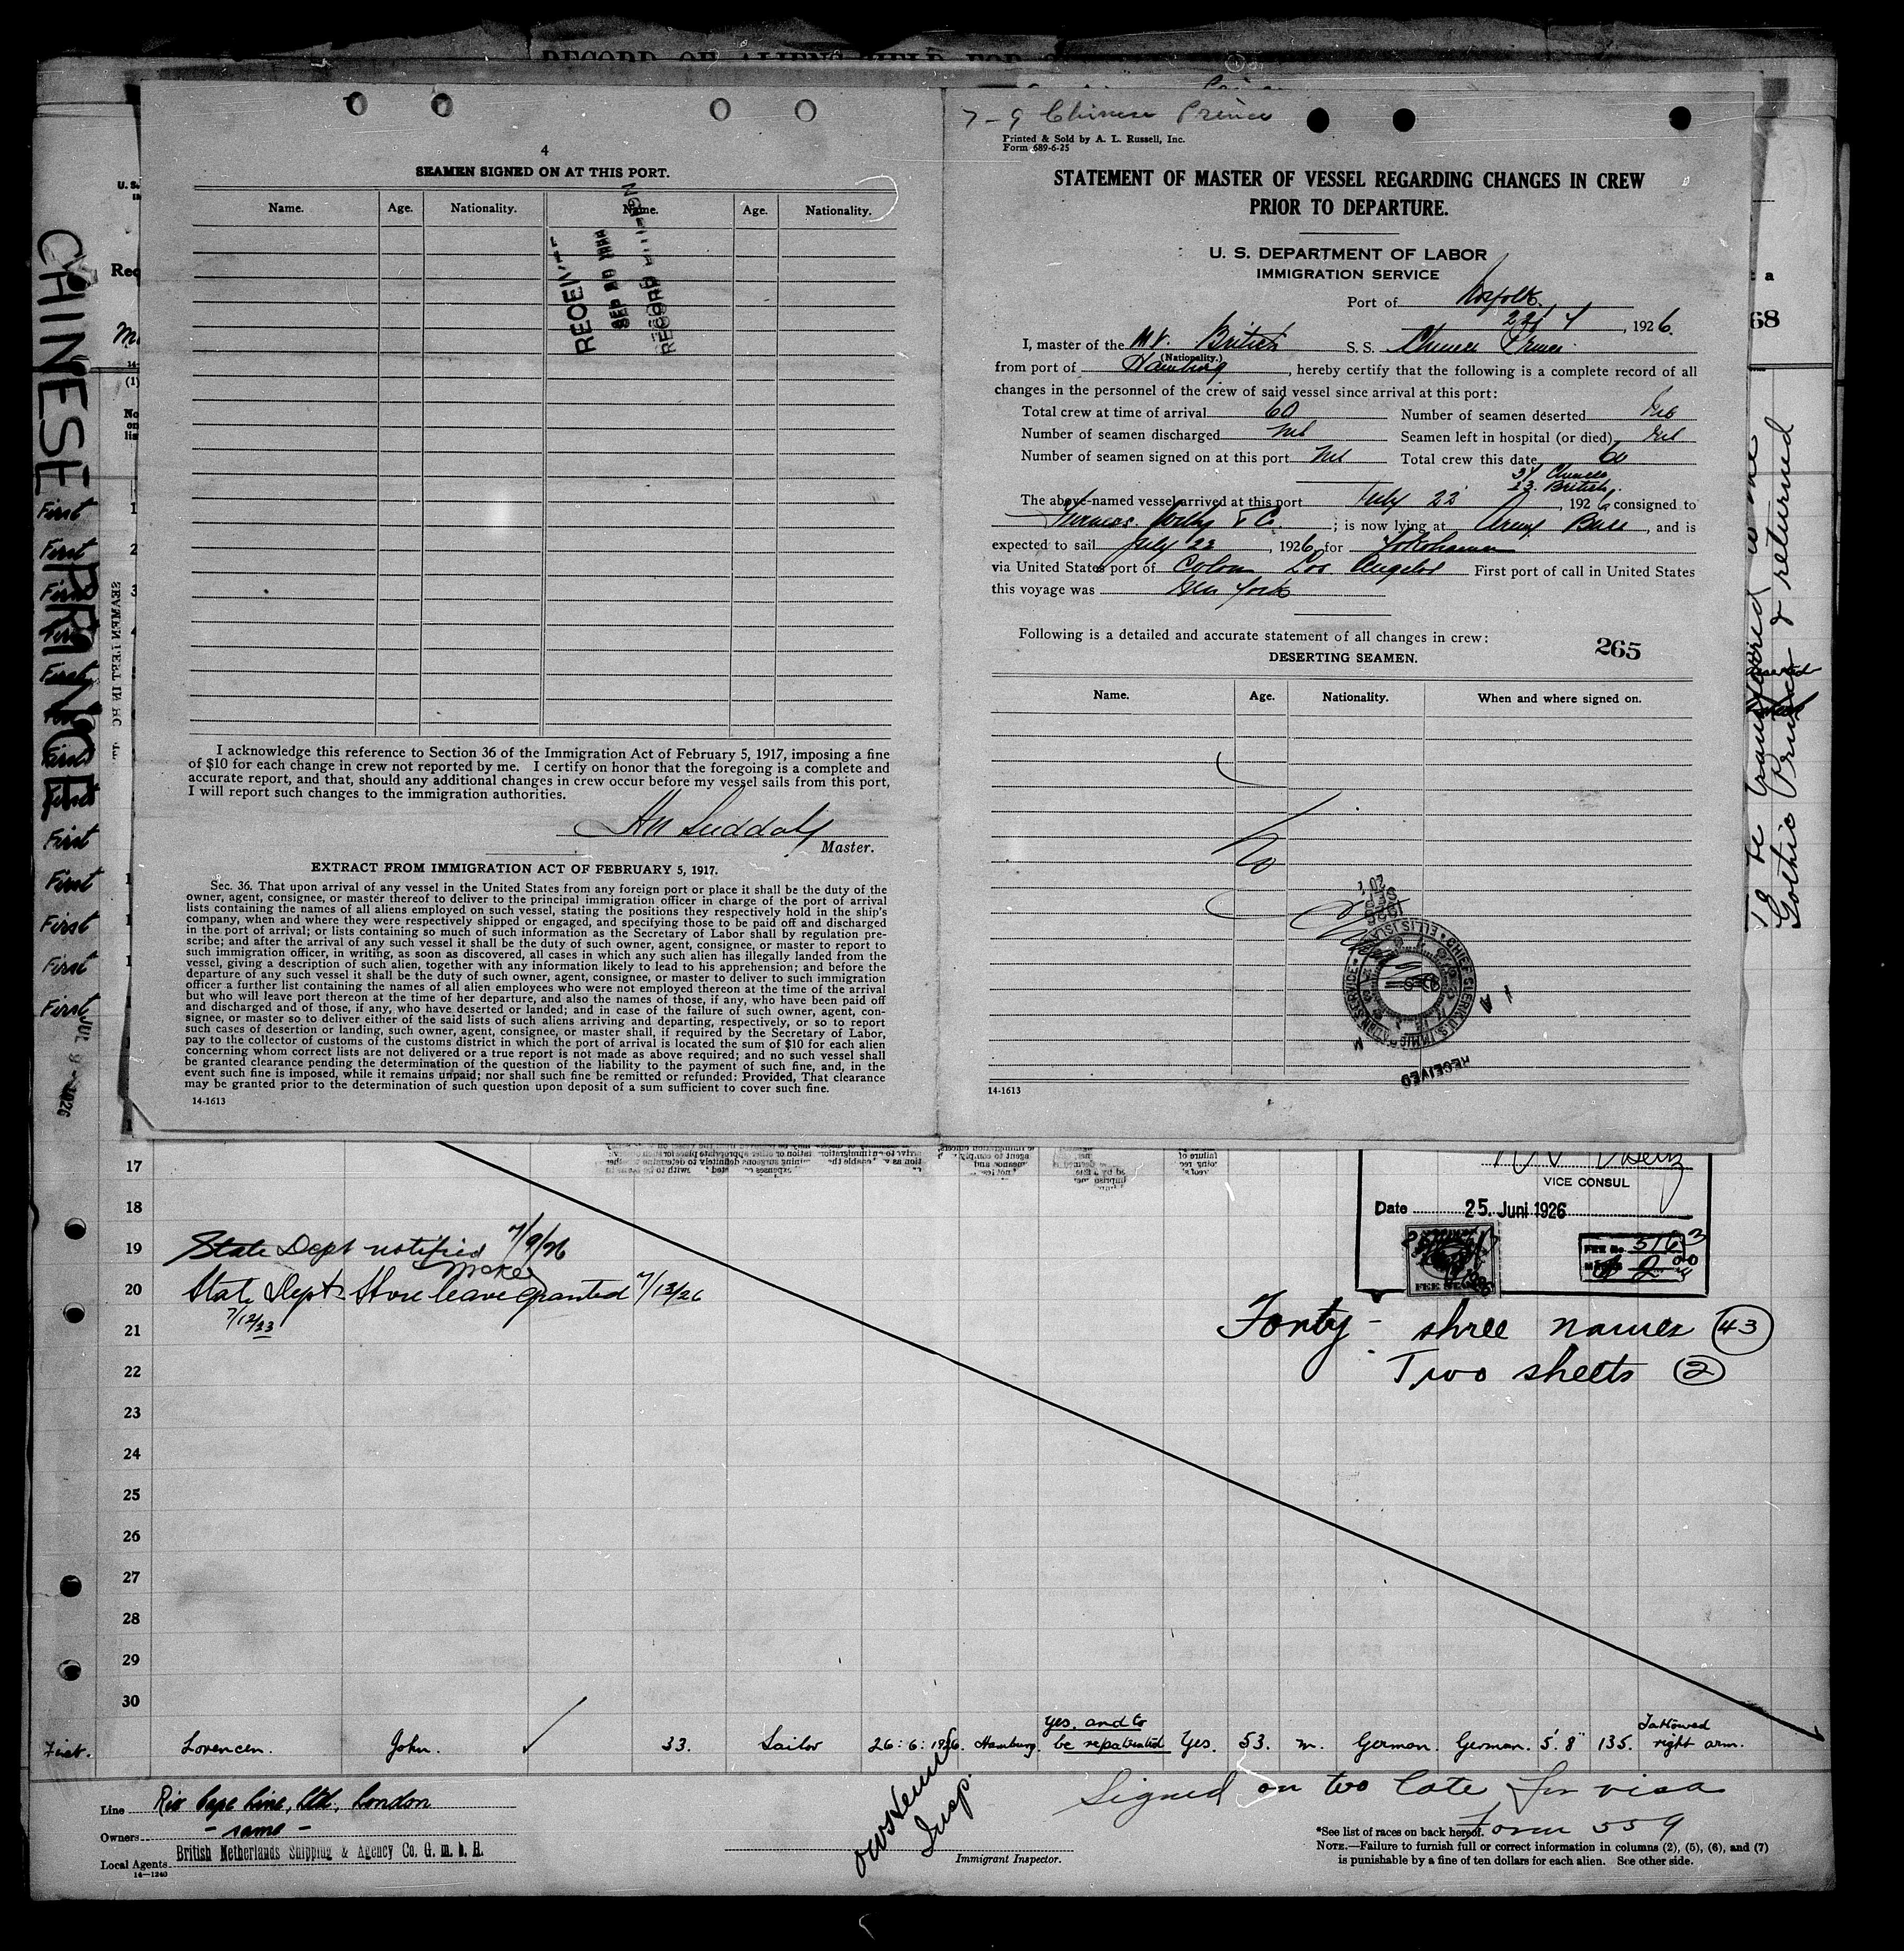 RECORD OF ALIENS HELD FOR S
4
SEAMEN SIGNED ON AT THIS PORT.
Name. Age. Nationality. Name. Age. Nationality.
I acknowledge this reference to Section 36 of the Immigration Act of February 5, 1917, imposing a fine
of $10 for each change in crew not reported by me. I certify on honor that the foregoing is a complete and
accurate report, and that, should any additional changes in crew occur before my vessel sails from this port,
I will report such changes to the immigration authorities.
Master.
EXTRACT FROM IMMIGRATION ACT OF FEBRUARY 5, 1917.
Sec. 36. That upon arrival of any vessel in the United States from any foreign port or place it shall be the duty of the
owner, agent, consignee, or master thereof to deliver to the principal immigration officer in charge of the port of arrival
lists containing the names of all aliens employed on such vessel, stating the positions they respectively hold in the ship's
company, when and where they were respectively shipped or engaged, and specifying those to be paid off and discharged
in the port of arrival; or lists containing so much of such information as the Secretary of Labor shall by regulation pre-
scribe; and after the arrival of any such vessel it shall be the duty of such owner, agent, consignee, or master to report to
such immigration officer, in writing, as soon as discovered, all cases in which any such alien has illegally landed from the
vessel, giving a description of such alien, together with any information likely to lead to his apprehension; and before the
departure of any such vessel it shall be the duty of such owner, agent, consignee, or master to deliver to such immigration
officer a further list containing the names of all alien employees who were not employed thereon at the time of the arrival
but who will leave port thereon at the time of her departure, and also the names of those, if any, who have been paid off
and discharged and of those, if any, who have deserted or landed; and in case of the failure of such owner, agent, con-
signee, or master so to deliver either of the said lists of such aliens arriving and departing, respectively, or so to report
such cases of desertion or landing, such owner, agent, consignee, or master shall, if required by the Secretary of Labor,
pay to the collector of customs of the customs district in which the port of arrival is located the sum of $10 for each alien
concerning whom correct lists are not delivered or a true report is not made as above required; and no such vessel shall
be granted clearance pending the determination of the question of the liability to the payment of such fine, and, in the
event such fine is imposed, while it remains unpaid; nor shall such fine be remitted or refunded: Provided, That clearance
may be granted prior to the determination of such question upon deposit of a sum sufficient to cover such fine.
14-1613
7-9 Chinese Prince
Printed & Sold by A. L. Russell, Inc.
Form 689-6-25
STATEMENT OF MASTER OF VESSEL REGARDING CHANGES IN CREW
PRIOR TO DEPARTURE.
U. S. DEPARTMENT OF LABOR
IMMIGRATION SERVICE
Port of Norfolk
, 1926.
I, master of the M.V. British S. S. Chinese Prince
(Nationality.)
from port of Hamburg, hereby certify that the following is a complete record of all
changes in the personnel of the crew of said vessel since arrival at this port:
Total crew at time of arrival 60 Number of seamen deserted Nil
Number of seamen discharged Nil Seamen left in hospital (or died) Nil
Number of seamen signed on at this port Nil Total crew this date 60
Chinese
23 British
The above-named vessel arrived at this port July 22, 1926, consigned to
Furness Withy & Co.; is now lying at Army Base, and is
expected to sail July 22, 1926, for Yokohama
via United States port of Colon Los Angeles First port of call in United States
this voyage was New York
Following is a detailed and accurate statement of all changes in crew:
265
DESERTING SEAMEN.
Name. Age. Nationality. When and where signed on.
No
RECEIVED
14-1613
CHINESE PRINCE
First
First
First
First
First
First
First
First
First
First
First
First
First
JUL 9 - 1926
68
to be transferred to the
Gothic Prince & returned
17
18
19 State Dept notified 7/9/26
20 State Dept Shore leave granted 7/13/26
21
22
23
24
25
26
27
28
29
30
VICE CONSUL
Date 25. Juni 1926
FEE STAMP
FEE No. 5163
Forty - three names (43)
Two sheets (2)
First. Lorencen. John. 33. Sailor 26:6:1926. Hamburg. Yes, and to be repatriated Yes. 53. m. German. German. 5' 8" 135. Tattowed right arm.
Signed on too late for visa
Form 559
Line Rio Cape Line, Ltd. London
Owners - same -
Local Agents British Netherlands Shipping & Agency Co. G. m. b. H.
14-1240
Insp.
Immigrant Inspector.
*See list of races on back hereof.
NOTE.—Failure to furnish full or correct information in columns (2), (5), (6), and (7)
is punishable by a fine of ten dollars for each alien. See other side.